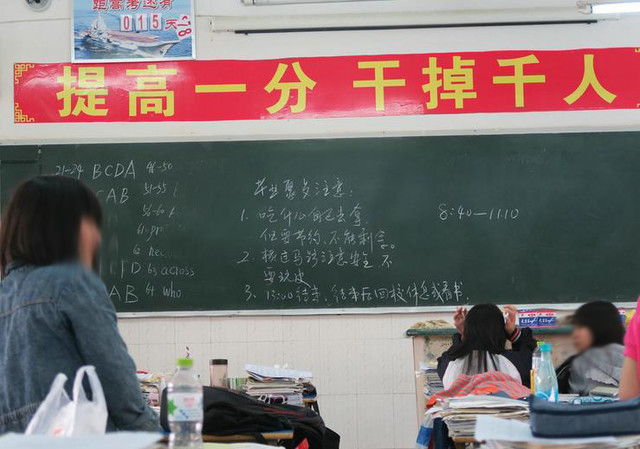 距高考还有
015天
提高一分 干掉千人
21-24 BCDA 46-50
CAB 51-55
56-60
61
62
D 63 across
AB 64 who
毕业聚餐注意:
1. 吃什么自己去拿,
但要节约,不能剩
2. 横过马路注意安全,不
要玩
3、13:00结束,结束后回校休息或看书
8:40—1110